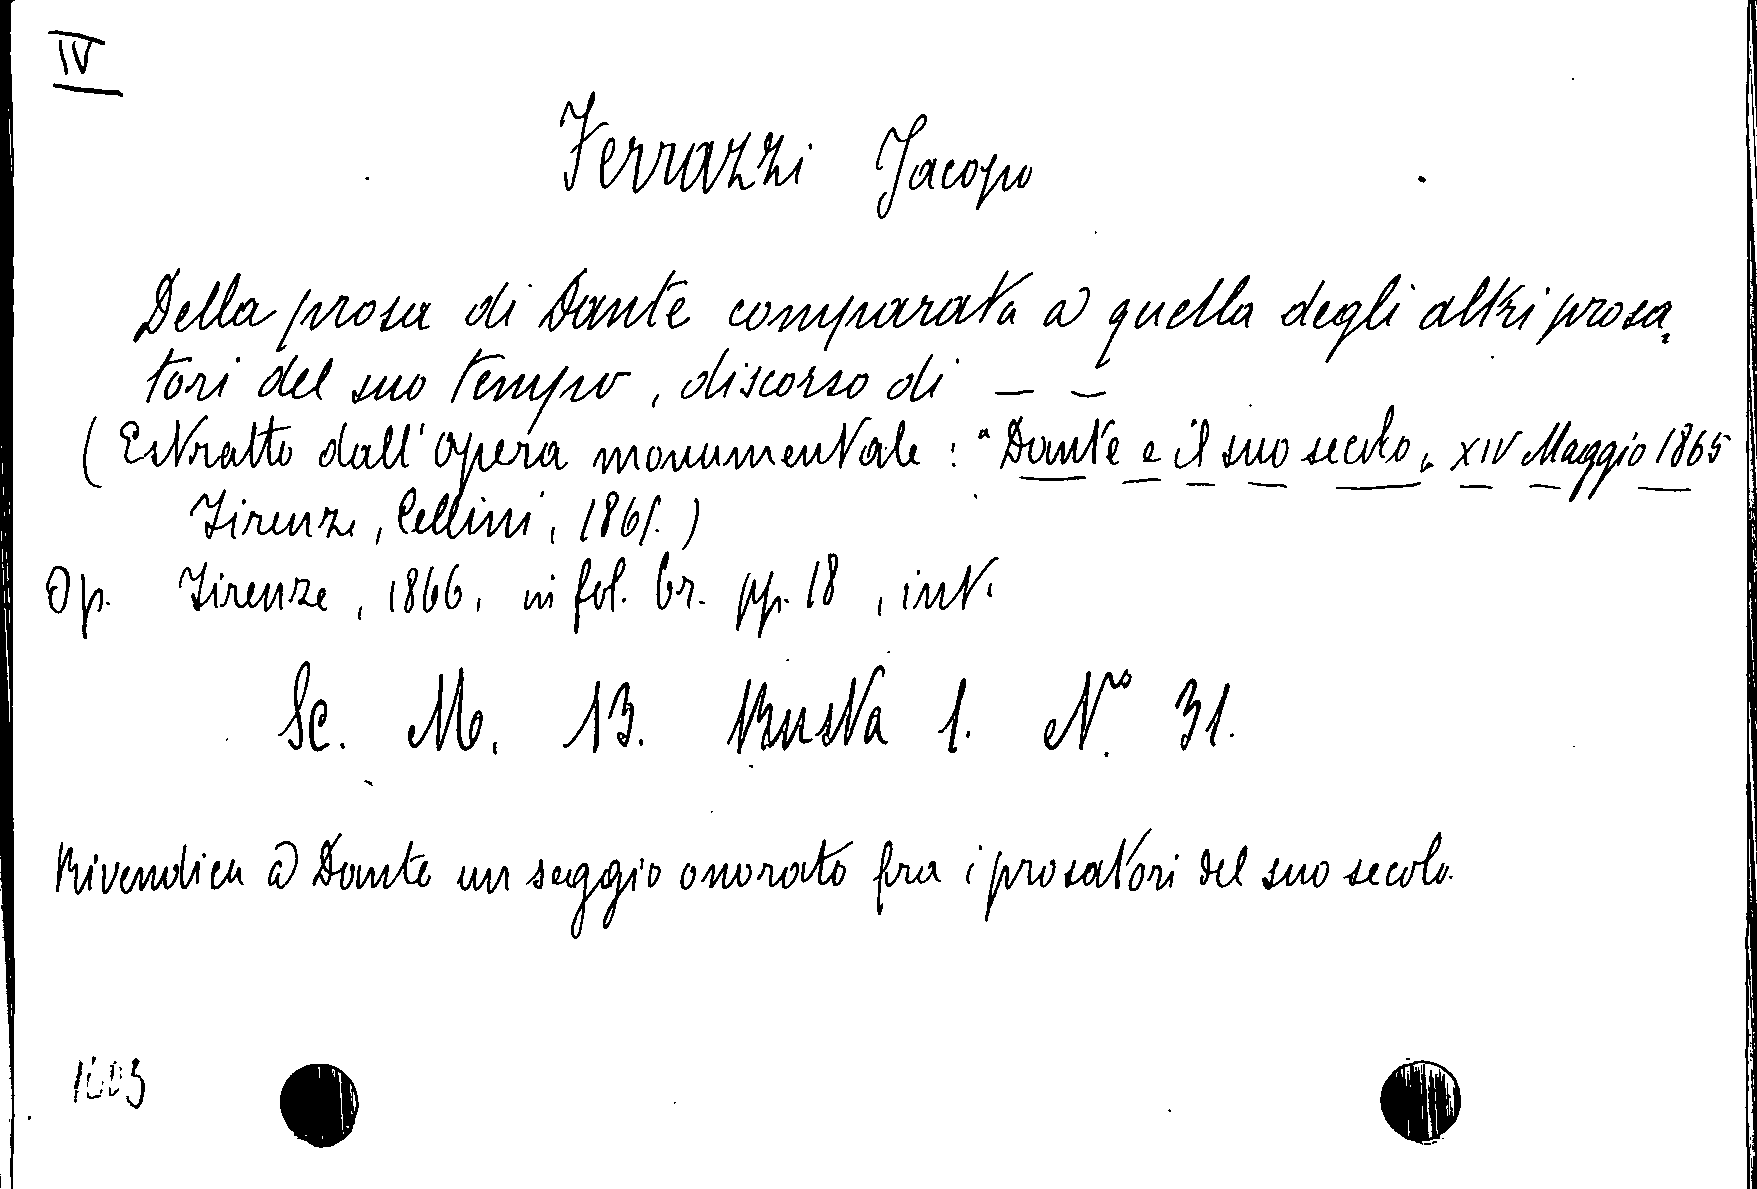 IV
Ferrazzi Jacopo
Della prosa di Dante comparata a quella degli altri prosa
tori del suo tempo, discorso di — —
(Estratto dall'opera monumentale: "Dante e il suo secolo" XIV Maggio 1865
Firenze, Cellini, 1865.)
Op. Firenze, 1866, in fol. br. pp. 18, int.
Sc. M. 13. Busta 1. N.º 31.
Rivendica a Dante un seggio onorato fra i prosatori del suo secolo.